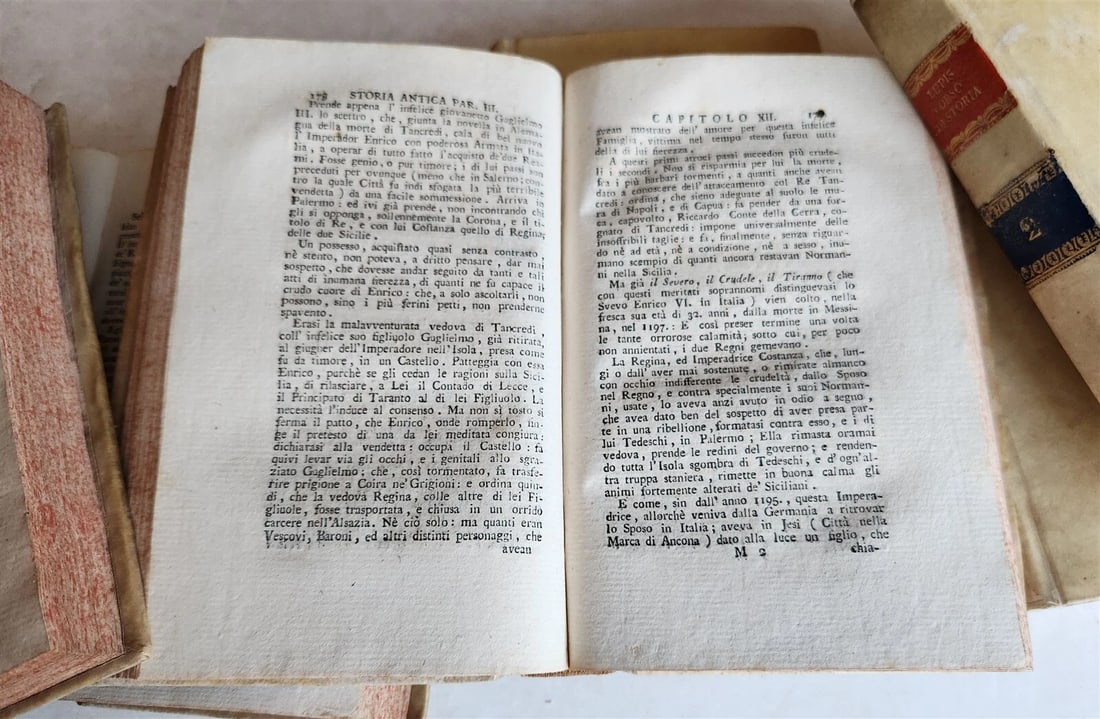 178 STORIA ANTICA PAR. III.
Prende appena l' infelice giovanetto Guglielmo
III. lo scettro, che, giunta la novella in Alema-
gna della morte di Tancredi, cala di bel nuovo
l' Imperador Enrico con poderosa Armata in Ita-
lia, a operar di tutto fatto l'acquisto de'due Rea-
mi. Fosse genio, o pur timore; i di lui passi son
preceduti per ovunque (meno che in Salerno; con-
tro la quale Città fu indi sfogata la più terribile
vendetta) da una facile sommessione. Arriva in
Palermo: ed ivi già prende, non incontrando chi
gli si opponga, sollennemente la Corona, e il ti-
tolo di Re, e con lui Costanza quello di Regina,
delle due Sicilie.
Un possesso, acquistato quasi senza contrasto,
nè stento, non poteva, a dritto pensare, dar mai
sospetto, che dovesse andar seguito da tanti e tali
atti di inumana fierezza, di quanti ne fu capace il
crudo cuore di Enrico: che, a solo ascoltarli, non
possono, sino i più ferini petti, non prenderne
spavento.
Erasi la malavventurata vedova di Tancredi,
coll' infelice suo figliuolo Guglielmo, già ritirata,
al giugner dell'Imperadore nell'Isola, presa come
fu da timore, in un Castello. Patteggia con essa
Enrico, purchè se gli cedan le ragioni sulla Sici-
lia, di rilasciare, a Lei il Contado di Lecce, e
il Principato di Taranto al di lei Figliuolo. La
necessità l'induce al consenso. Ma non sì tosto si
ferma il patto, che Enrico, onde romperlo, fin-
ge il pretesto di una da lei meditata congiura:
dichiarasi alla vendetta: occupa il Castello: fa
quivi levar via gli occhi, e i genitali allo sgra-
ziato Guglielmo; che, così tormentato, fa trasfe-
rire prigione a Coira ne' Grigioni: e ordina quin-
di, che la vedova Regina, colle altre di lei Fi-
gliuole, fosse trasportata, e chiusa in un orrido
carcere nell'Alsazia. Nè ciò solo: ma quanti eran
Vescovi, Baroni, ed altri distinti personaggi, che
avean
CAPITOLO XII.
avean mostrato dell' amore per questa infelice
Famiglia, vittima nel tempo stesso furon tutti
della di lui fierezza.
A questi primi atroci passi succedon più crude-
li i secondi. Non si risparmia per lui la morte,
fra i più barbari tormenti, a quanti anche avean
dato a conoscere dell'attaccamento col Re Tan-
credi: ordina, che sieno adeguate al suolo le mu-
ra di Napoli, e di Capua: fa pender da una for-
ca, capovolto, Riccardo Conte della Cerra, co-
gnato di Tancredi: impone universalmente delle
insoffribili taglie: e fa, finalmente, senza riguar-
do nè ad età, nè a condizione, nè a sesso, inu-
mano scempio di quanti ancora restavan Norman-
ni nella Sicilia.
Ma già il Severo, il Crudele, il Tiranno (che
con questi meritati soprannomi distinguevasi lo
Svevo Enrico VI. in Italia) vien colto, nella
fresca sua età di 32. anni, dalla morte in Messi-
na, nel 1197.: E così preser termine una volta
le tante orrorose calamità; sotto cui, per poco
non annientati, i due Regni gemevano.
La Regina, ed Imperadrice Costanza, che, lun-
gi o dall' aver mai sostenute, o rimirate almanco
con occhio indifferente le crudeltà, dallo Sposo
nel Regno, e contra specialmente i suoi Norman-
ni, usate, lo aveva anzi avuto in odio a segno,
che avea dato ben del sospetto di aver presa par-
te in una ribellione, formatasi contra esso, e i di
lui Tedeschi, in Palermo; Ella rimasta oramai
vedova, prende le redini del governo; e renden-
do tutta l'Isola sgombra di Tedeschi, e d' ogn'al-
tra truppa straniera, rimette in buona calma gli
animi fortemente alterati de' Siciliani.
E come, sin dall' anno 1195., questa Impera-
drice, allorchè veniva dalla Germania a ritrovar
lo Sposo in Italia; aveva in Jesi (Città nella
Marca di Ancona) dato alla luce un figlio, che
M 2 chia-
2